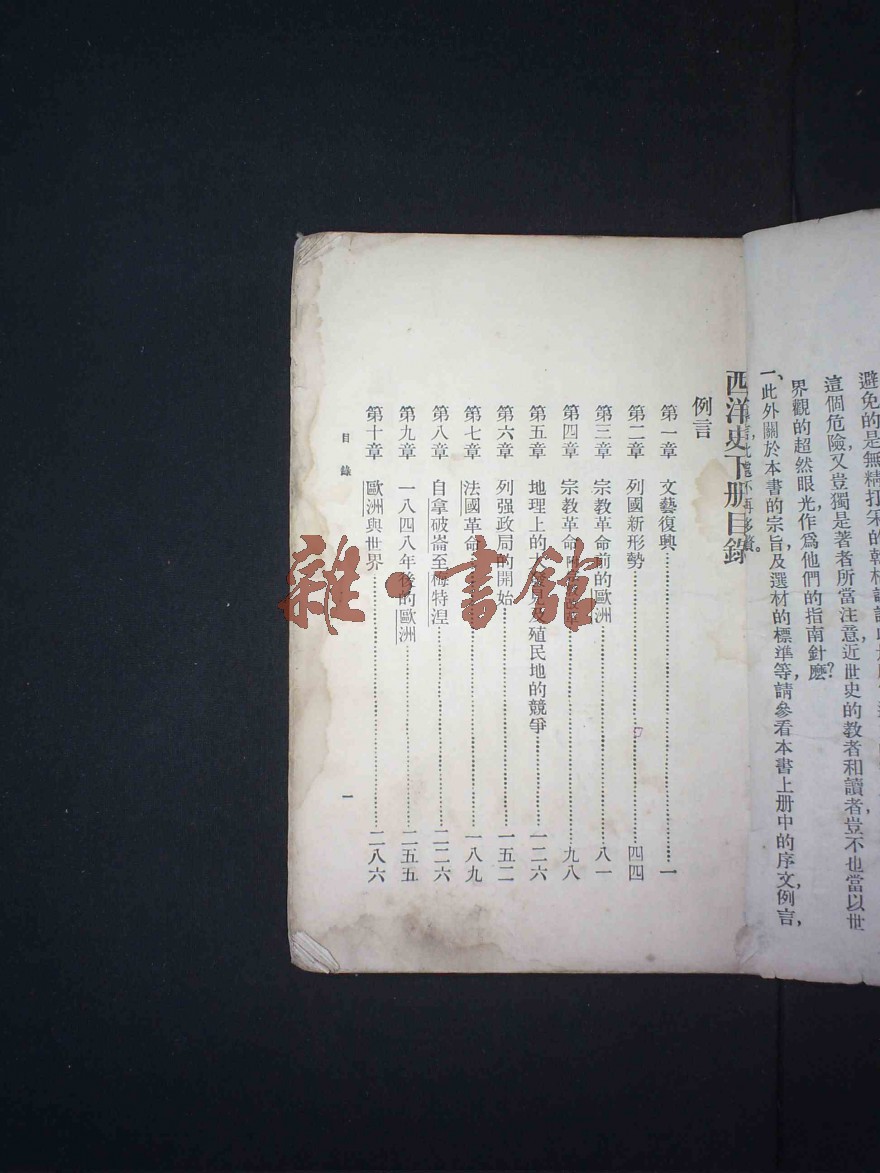 避免的是無精打采的
這個危險,又豈獨是著者所當注意,近世史的教者和讀者豈不也當以世
界觀的超然眼光,作爲他們的指南針麼?
一、此外關於本書的宗旨,及選材的標準等,請參看本書上册中的序文,例言,
不再
西洋史下册目錄
例言
第一章 文藝復興……一
第二章 列國新形勢……四四
第三章 宗教革命前的歐洲……八一
第四章 宗教革命……九八
第五章 地理上的大發見及殖民地的競爭……一二六
第六章 列强政局的開始……一五二
第七章 法國革命……一八九
第八章 自拿破崙至梅特涅……二二六
第九章 一八四八年後的歐洲……二五五
第十章 歐洲與世界……二八六
目錄
一
雜·書館